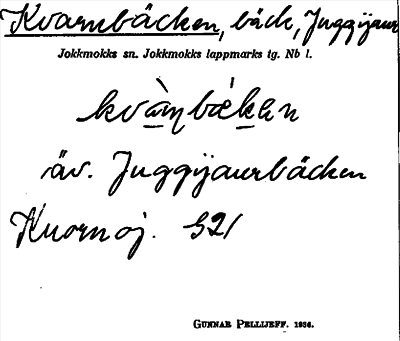 Kvarnbäcken, bäck, Juggijaur
Jokkmokks sn. Jokkmokks lappmarks tg. Nb l.
kvàṇbækən
äv. Juggijaurbäcken
Kuornoj. 921
GUNNAR PELLIJEFF. 1936.